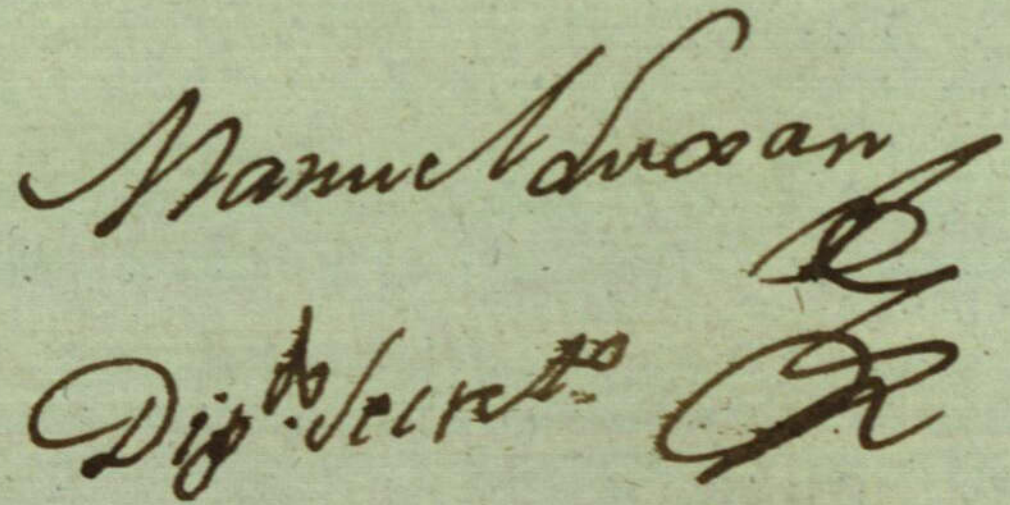 Manuel Duran
Dip.to Secret.o